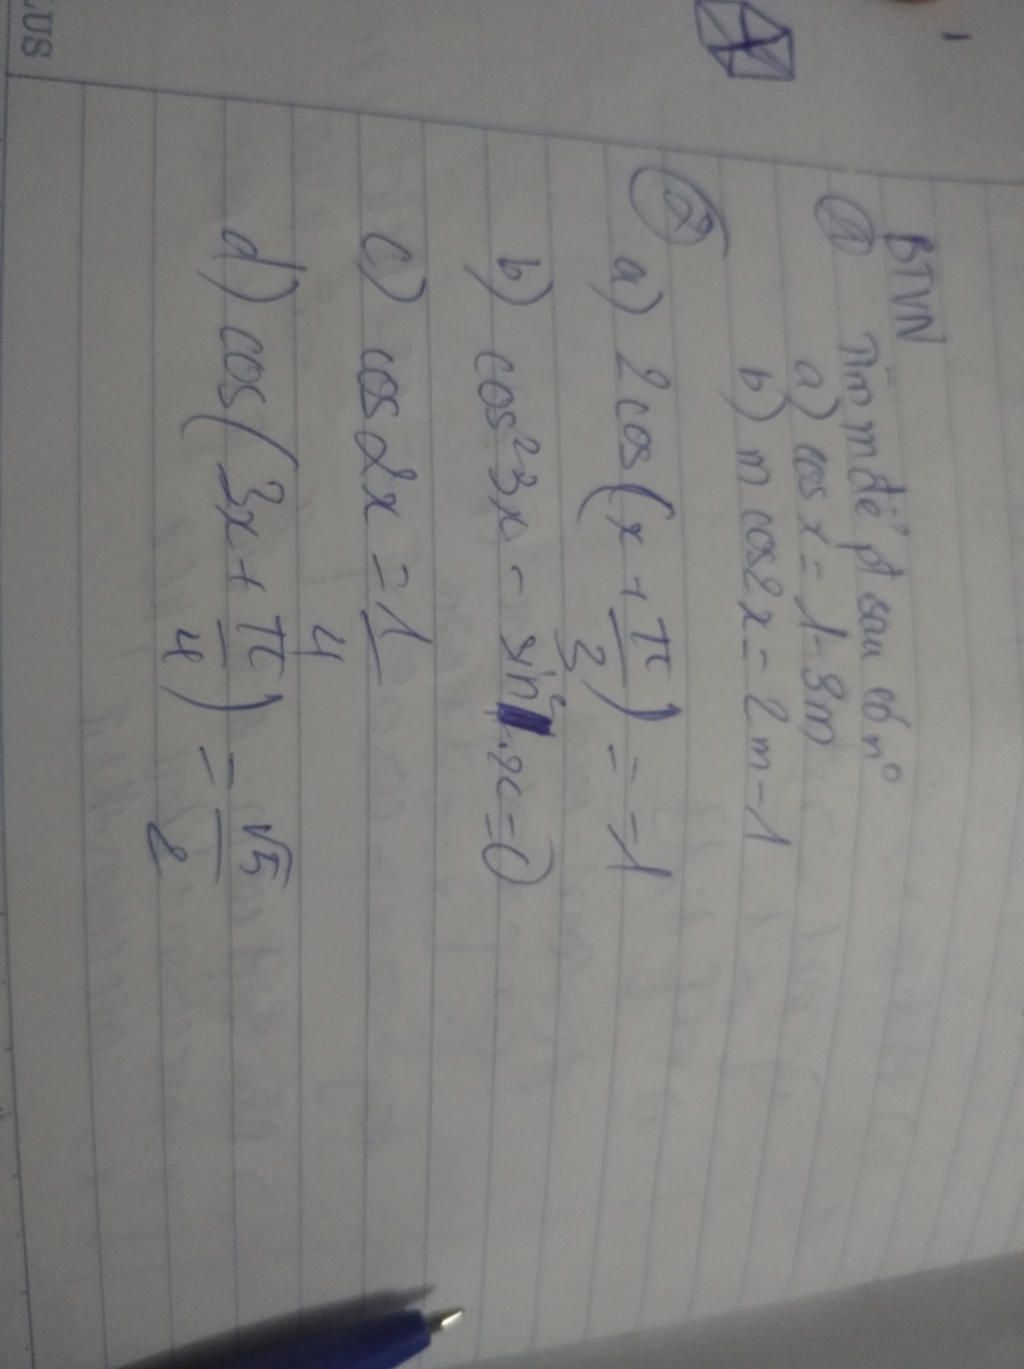 LUS
BTVN
① Tìm m để pt sau có n⁰
a) cos x = 1-3m
b) m cos2x = 2m-1
②
a) 2cos(x + π/3) = -1
b) cos²3x - sin²x = 0
c) cos2x = 1/4
d) cos(3x + π/4) = √5/2